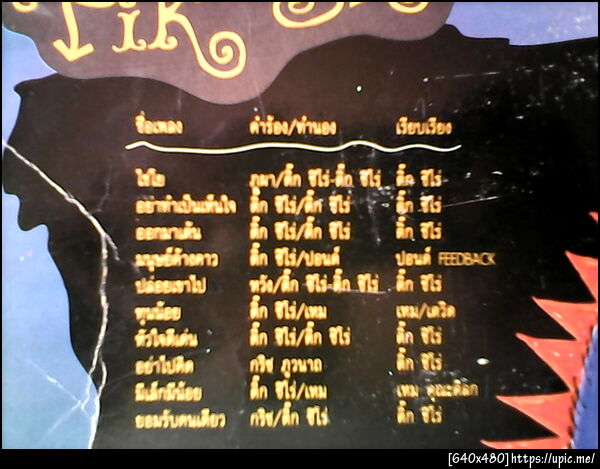 ชื่อเพลง คำร้อง/ทำนอง เรียบเรียง
ภูผา/ติ๊ก ชีโร่-ติ๊ก ชีโร่ ติ๊ก ชีโร่
อย่าทำเป็นเห็นใจ ติ๊ก ชีโร่/ติ๊ก ชีโร่ ติ๊ก ชีโร่
ออกมาเต้น ติ๊ก ชีโร่/ติ๊ก ชีโร่ ติ๊ก ชีโร่
มนุษย์ค้างคาว ติ๊ก ชีโร่/ปอนด์ ปอนด์ FEEDBACK
ปล่อยเขาไป หวัง/ติ๊ก ชีโร่-ติ๊ก ชีโร่ ติ๊ก ชีโร่
ทุนน้อย ติ๊ก ชีโร่/เทม
หัวใจดีเด่น ติ๊ก ชีโร่/ติ๊ก ชีโร่ ติ๊ก ชีโร่
อย่าไปคิด ติ๊ก ชีโร่
มีเล็กมีน้อย ติ๊ก ชีโร่/เทม เทม
ยอมรับคนเดียว กริช/ติ๊ก ชีโร่ ติ๊ก ชีโร่
[640x480]https://upic.me/